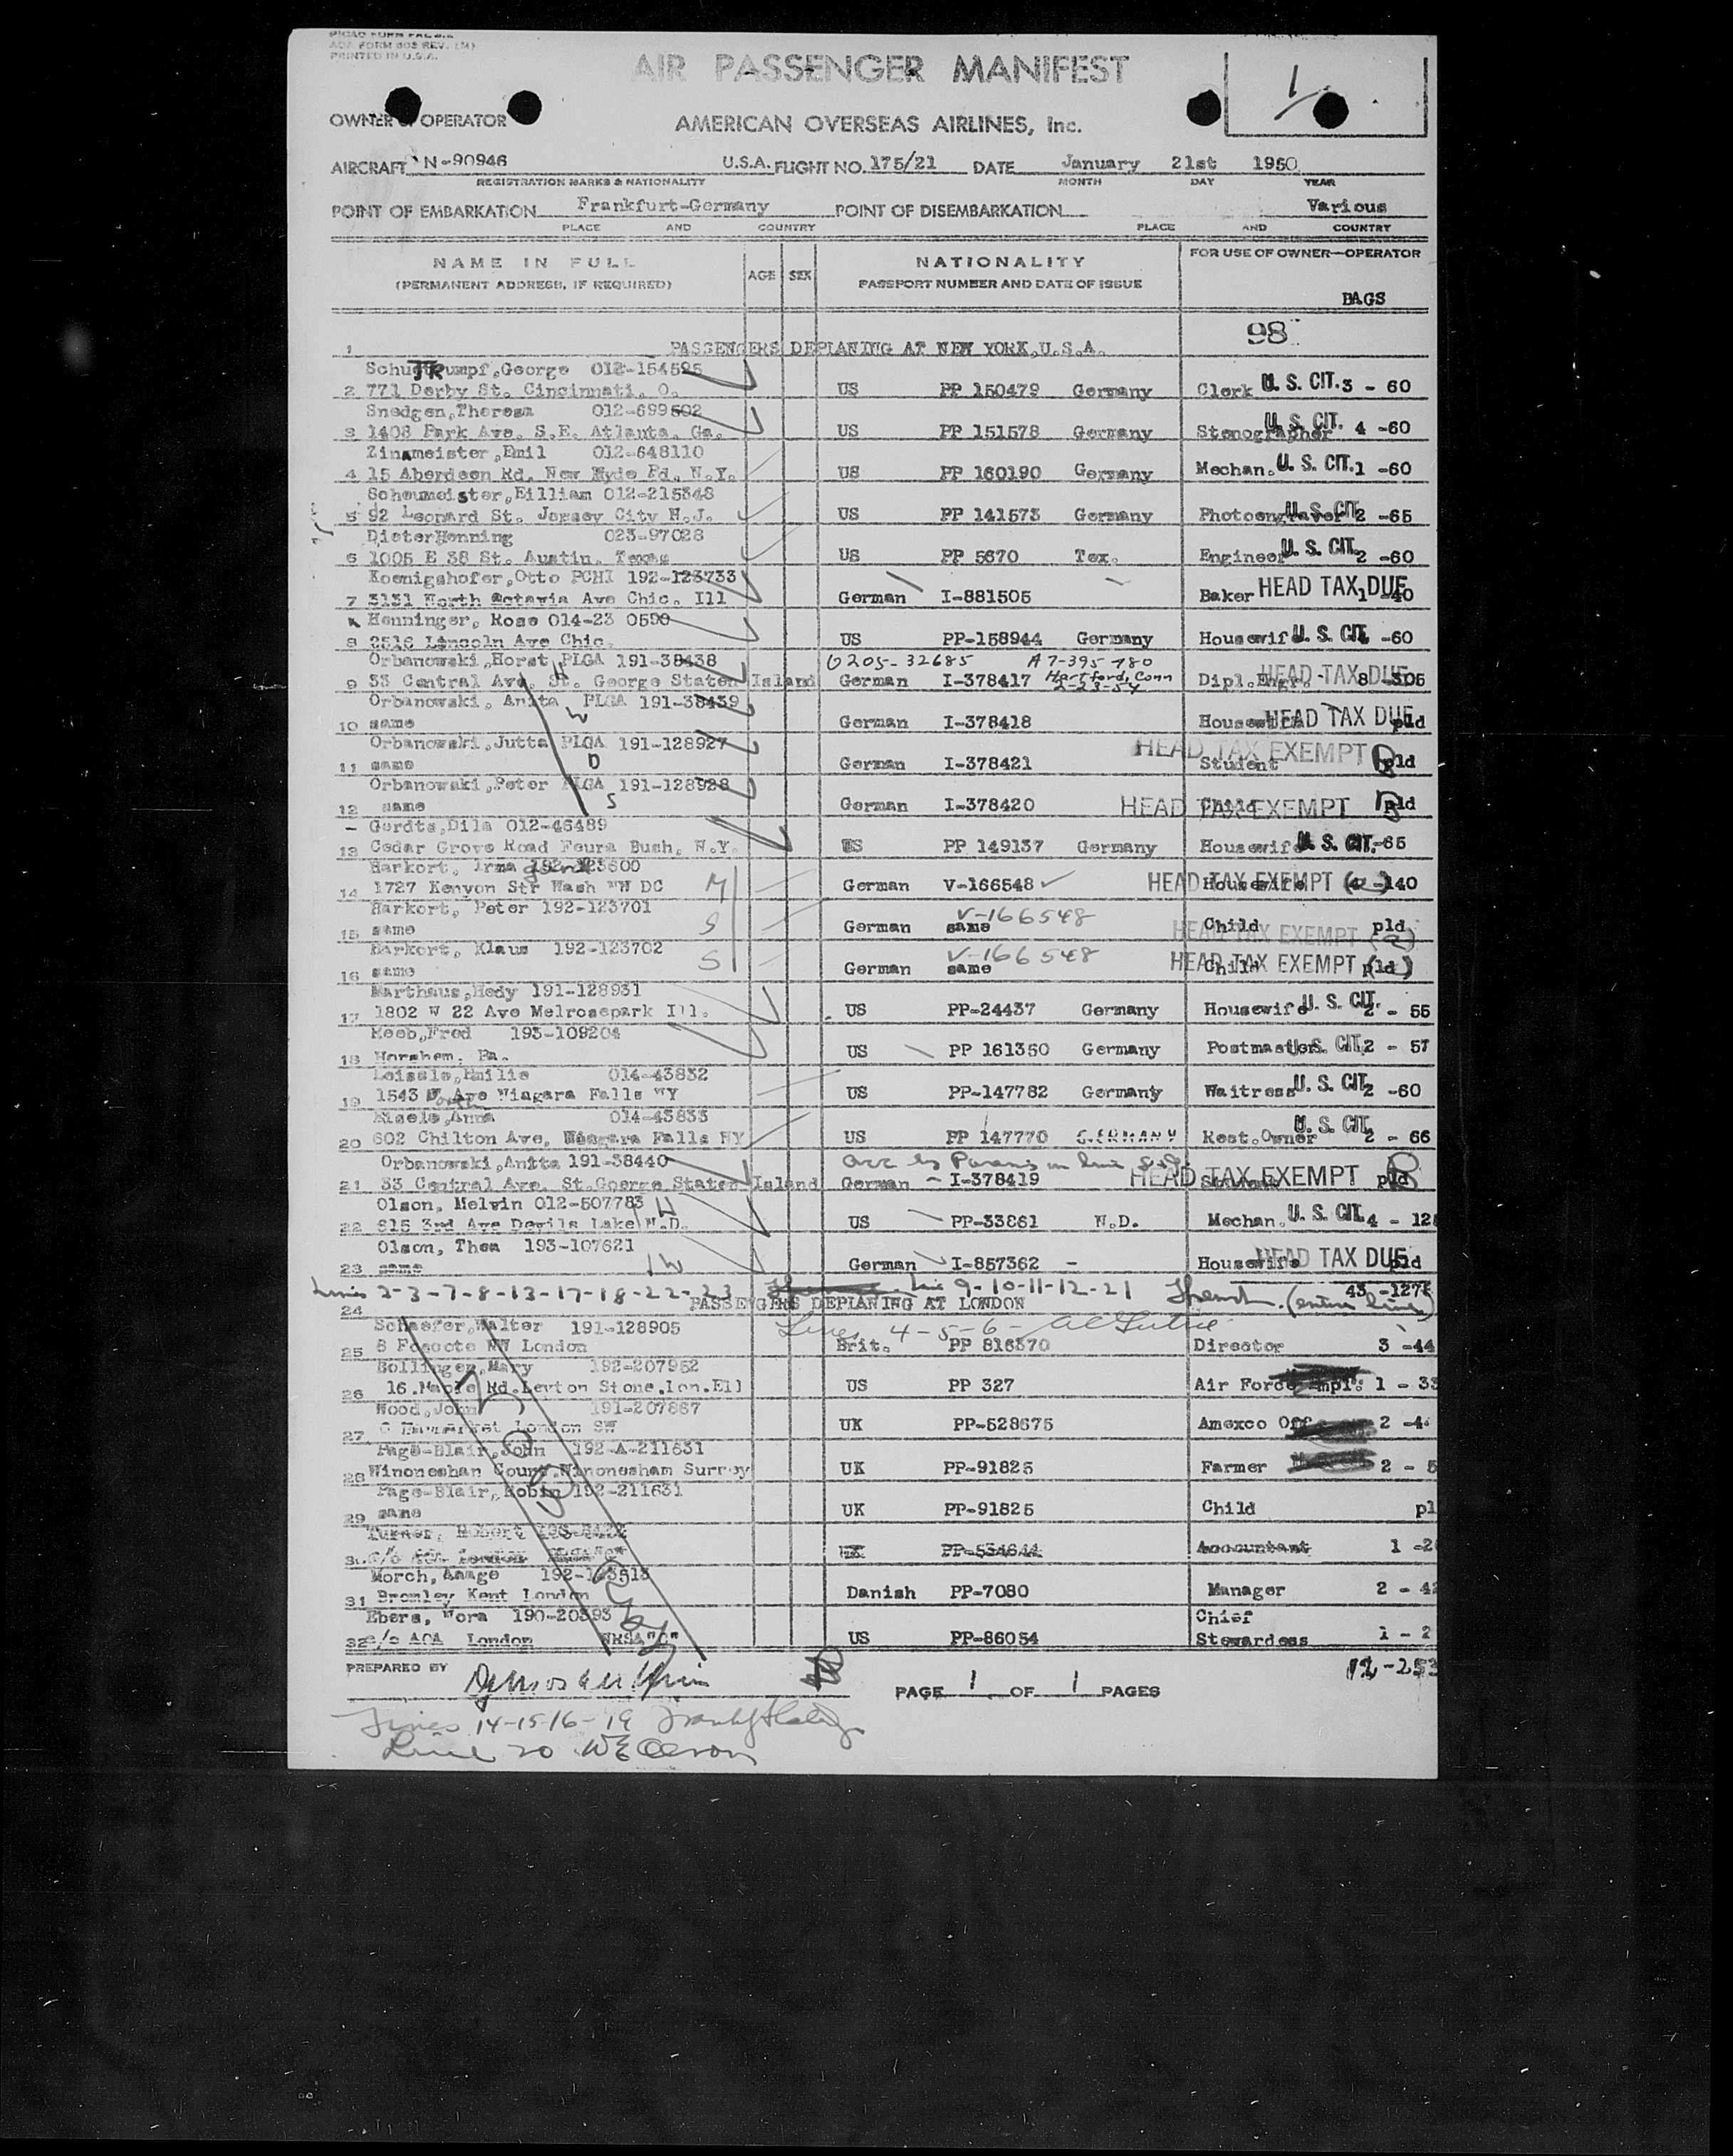 ACA FORM 803 REV. (M)
PRINTED IN U.S.A.
AIR PASSENGER MANIFEST
1
OWNER OPERATOR
AMERICAN OVERSEAS AIRLINES, Inc.
AIRCRAFT N-90946 U.S.A. FLIGHT NO. 175/21 DATE January 21st 1950
REGISTRATION MARKS & NATIONALITY MONTH DAY YEAR
POINT OF EMBARKATION Frankfurt-Germany POINT OF DISEMBARKATION Various
PLACE AND COUNTRY PLACE AND COUNTRY
NAME IN FULL AGE SEX NATIONALITY FOR USE OF OWNER—OPERATOR
(PERMANENT ADDRESS, IF REQUIRED) PASSPORT NUMBER AND DATE OF ISSUE
BAGS
98
1 PASSENGERS DEPLANING AT NEW YORK, U.S.A.
George 012-154595
2 771 Derby St. Cincinnati. O. US PP 150479 Germany Clerk U. S. CIT. 3 - 60
Snedgen,Theresa 012-699502
3 1408 Park Ave. S.E. Atlanta. Ga. US PP 151578 Germany Stenographer U. S. CIT. 4 -60
Zinsmeister,Emil 012-648110
4 15 Aberdeen Rd. New Hyde Pd. N.Y. US PP 160190 Germany Mechan. U. S. CIT. 1 -60
Scheumeister,Eilliam 012-215348
5 92 Leonard St. Jersey City N.J. US PP 141573 Germany Photoengraver U. S. CIT. 2 -65
DieterHenning 023-97028
6 1005 E 38 St. Austin. Texas US PP 5670 Tex. Engineer U. S. CIT. 2 -60
Koenigshofer,Otto PCHI 192-123733
7 3131 North Octavia Ave Chic. Ill German I-881505 Baker HEAD TAX DUE 1 -40
Henninger, Rose 014-23 0590
8 2516 Lincoln Ave Chic. US PP-158944 Germany Housewife U. S. CIT. -60
Orbanowski,Horst PLGA 191-38438 0205-32685 A7-395-780
9 33 Central Ave. St. George Staten Island German I-378417 Hartford, Conn 2-23-54 Dipl.Engr. HEAD TAX DUE 8 -305
Orbanowski, Anita PLGA 191-38439
10 same German I-378418 Housewife HEAD TAX DUE pld
Orbanowski,Jutta PLGA 191-128927
11 same German I-378421 Student HEAD TAX EXEMPT pld
Orbanowski,Peter PLGA 191-128928
12 same German I-378420 Child HEAD TAX EXEMPT pld
Gerdts,Dila 012-46489
13 Cedar Grove Road Feura Bush, N.Y. US PP 149137 Germany Housewife U. S. CIT. -65
Harkort, Irma 192-123600
14 1727 Kenyon Str Wash NW DC M German V-166548 Housewife HEAD TAX EXEMPT -140
Harkort, Peter 192-123701 V-166548
15 same S German same Child HEAD TAX EXEMPT pld
Harkort, Klaus 192-123702 V-166548
16 same S German same Child HEAD TAX EXEMPT pld
Marthaus,Hedy 191-128931
17 1802 W 22 Ave Melrosepark Ill. US PP-24437 Germany Housewife U. S. CIT. 2 - 55
Keeb,Fred 193-109204
18 Horshem. Pa. US PP 161350 Germany Postmaster U. S. CIT. 2 - 57
Leissle,Emilie 014-43832
19 1543 Ave Niagara Falls NY US PP-147782 Germany Waitress U. S. CIT. 2 -60
Eisele,Anna 014-43833
20 602 Chilton Ave, Niagara Falls NY US PP 147770 GERMANY Rest.Owner U. S. CIT. 2 - 66
Orbanowski,Anita 191-38440
21 33 Central Ave. St.George Staten Island German I-378419 HEAD TAX EXEMPT pld
Olson, Melvin 012-507783 H
22 815 3rd Ave Devils Lake N.D. US PP-33861 N.D. Mechan. U. S. CIT. 4 - 128
Olson, Thea 193-107621
23 same W German I-857362 - Housewife HEAD TAX DUE pld
Lines 2-3-7-8-13-17-18-22-23 Line 9-10-11-12-21 (entire line) 43
24 PASSENGERS DEPLANING AT LONDON
Schaefer,Walter 191-128905 Lines 4-5-6-
25 London Brit. PP 816370 Director 3 -44
Bollinger,Mary 192-207952
26 16.Maple Rd.Leyton Stone.Lon.Ell US PP 327 Air Force 1 - 33
Wood,John 191-207867
27 London SW UK PP-528675 Amexco Off 2
Page-Blair,John 192-A-211631
28 Winoneshan Court.Winonesham Surrey UK PP-91825 Farmer 2 - 5
Page-Blair,Robin 192-211631
29 same UK PP-91825 Child pl
Turner, Robert
30 c/o London UK PP-534644 Accountant 1
Morch, 192-123513
31 Bromley Kent London Danish PP-7080 Manager 2 - 42
Ebers, Nora 190-20393 Chief
32 c/o AOA London US PP-86054 Stewardess 1 - 2
PREPARED BY 12-253
PAGE 1 OF 1 PAGES
Lines 14-15-16-19
Line 20